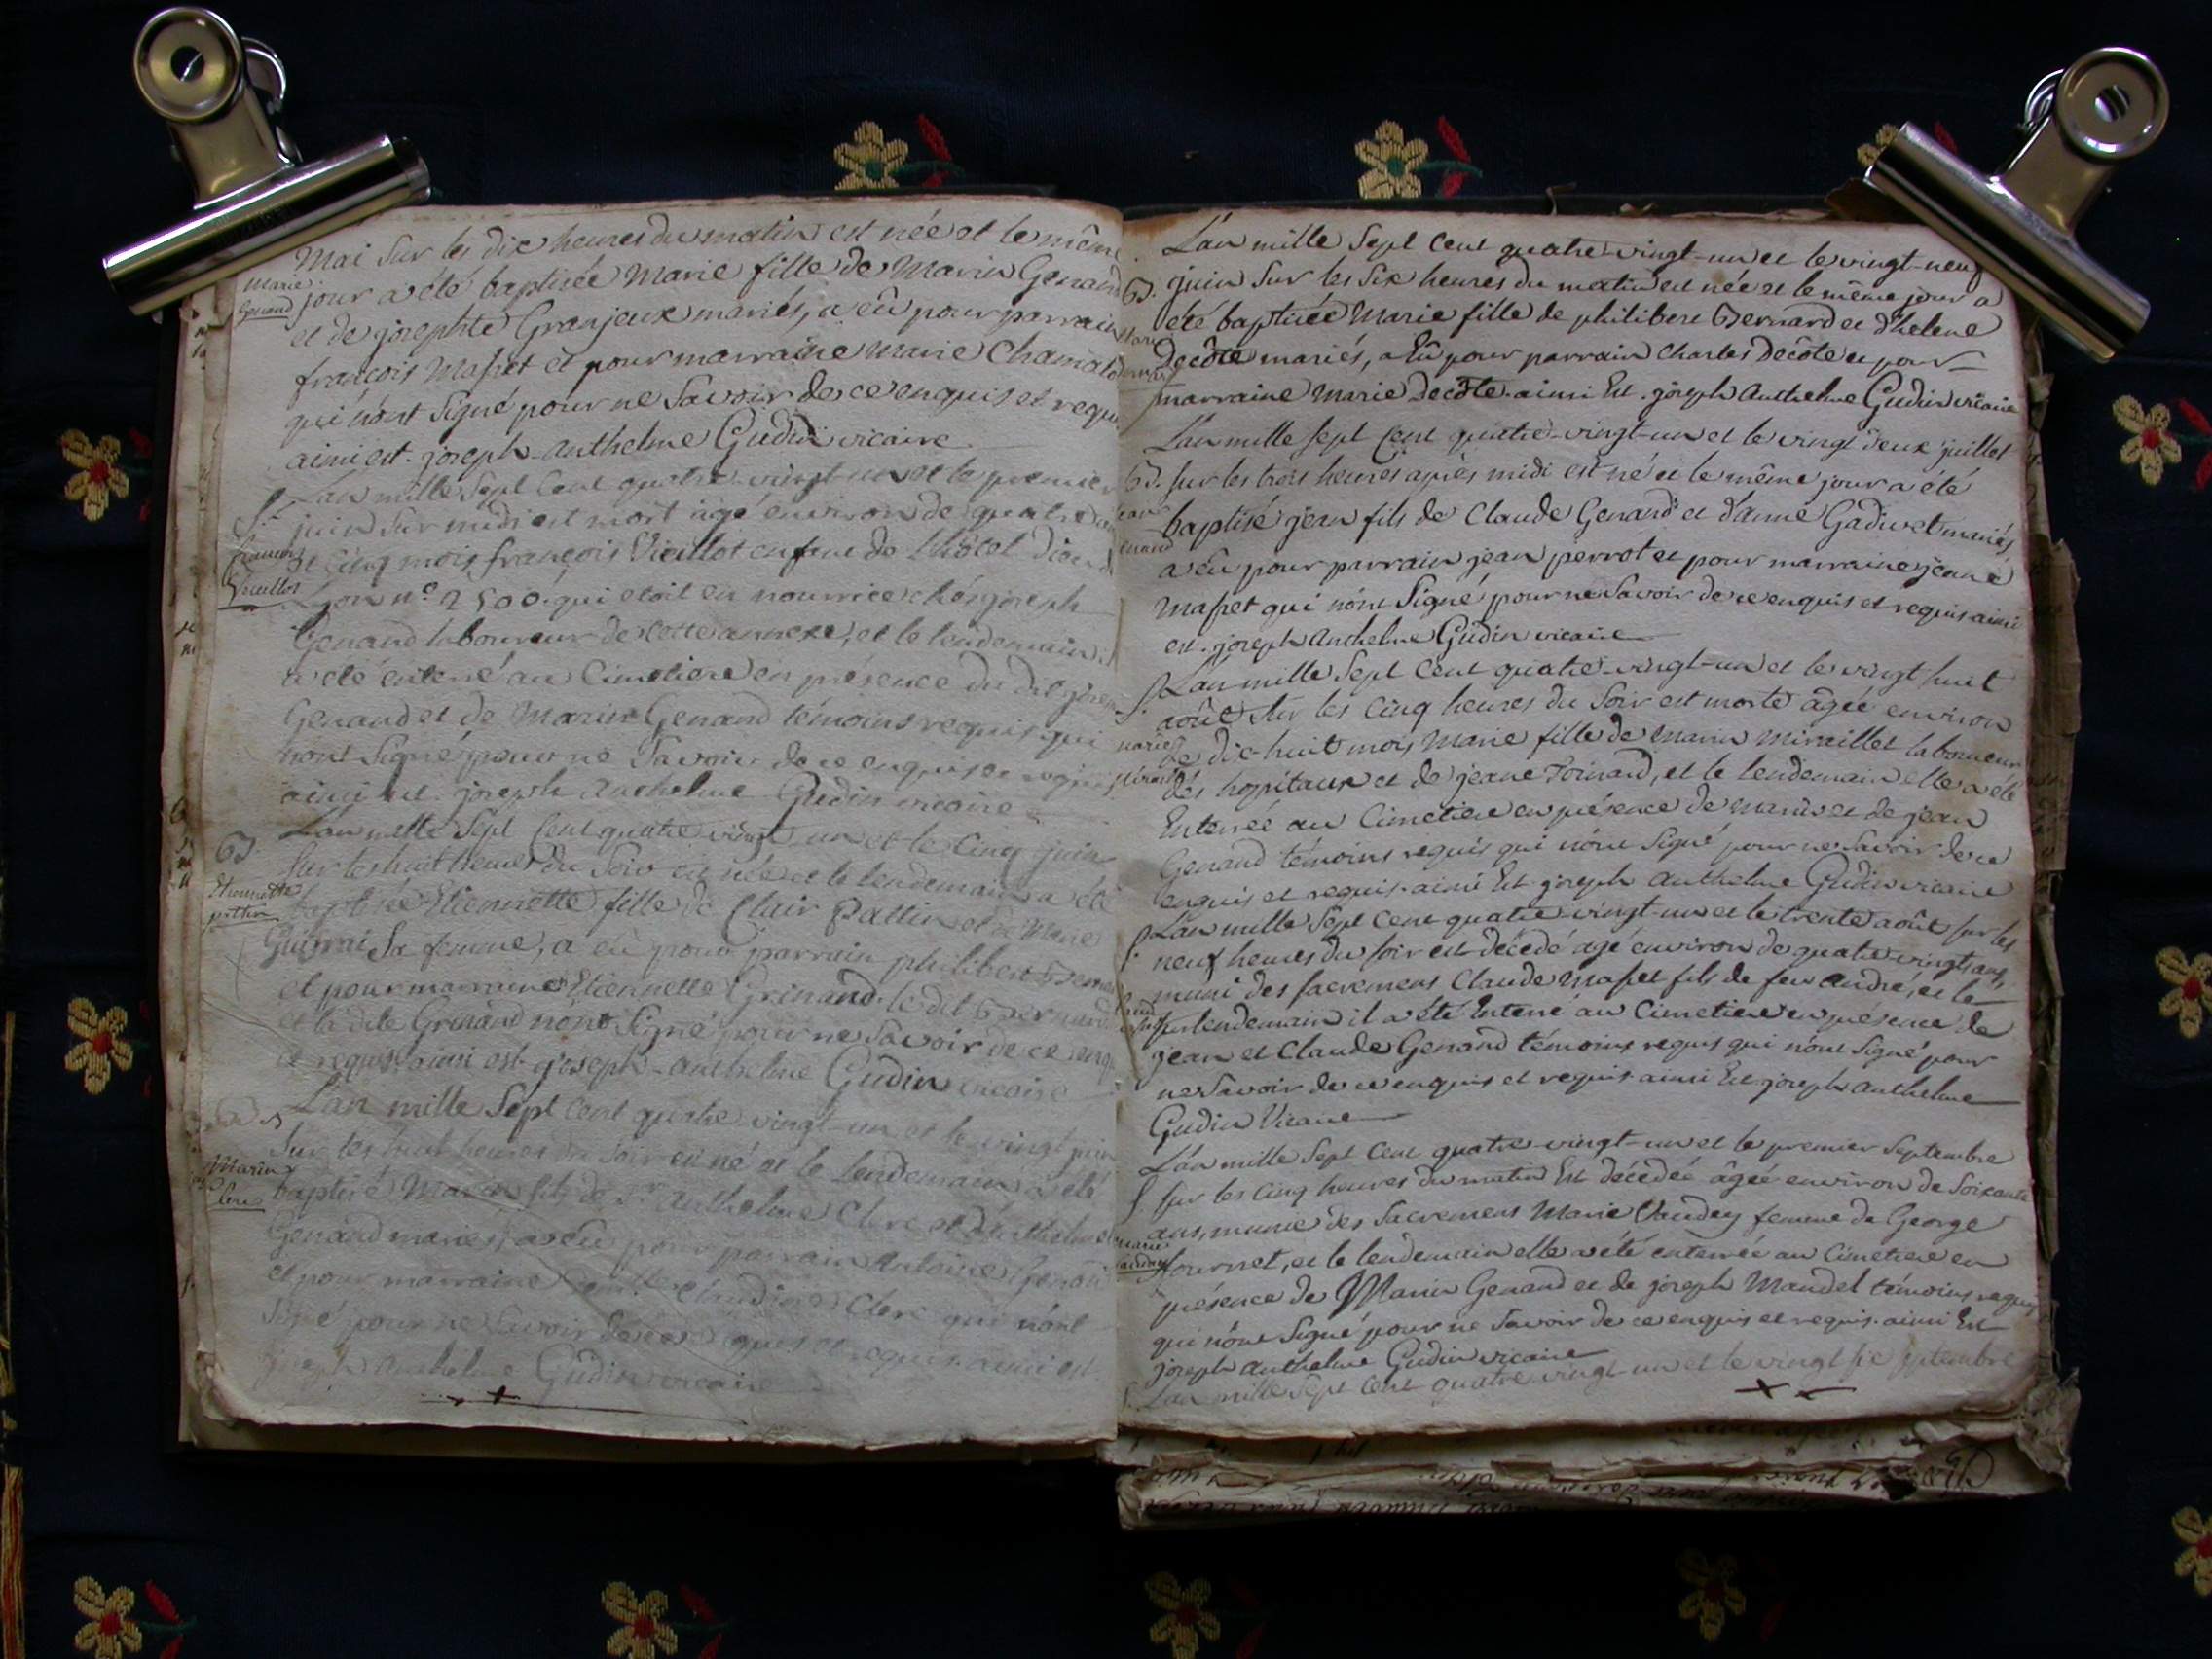 Mai sur les dix heures du matin est née et le même
Marie
Genand
jour a été baptisée Marie fille de Marin Genand
et de josephte Granjeux mariés, a eû pour parrain
françois Maset et pour marraine Marie
qui n'ont signé pour ne savoir de ce enquis et requis
ainsi est. joseph anthelme Gudin vicaire
S.
L'an mille sept cent quatre-vingt-un et le premier
juin sur midi est mort âgé environ de quatre ans
françois
Vieillot
et cinq mois françois Vieillot enfant de l'hôtel Dieu de
Lyon n° 2500 qui etoit en nourrice chés joseph
Genand laboureur de cette annexe, et le lendemain il
a été enterré au Cimetiere en présence du dit joseph
Genand et de Marin Genand témoins requis qui
n'ont signé pour ne savoir de ce enquis et requis
ainsi est. joseph anthelme Gudin vicaire
B.
L'an mille sept cent quatre vingt un et le cinq juin
sur les huit heures du soir est née et le lendemain a été
Etiennette
pattin
baptisée Etiennette fille de Clair Pattin et de Marie
sa femme, a eû pour parrain philibert Bernard
et pour marraine Etiennette Grinand. le dit Bernard
et la dite Grinand n'ont signé pour ne savoir de ce enquis
et requis. ainsi est. joseph-anthelme Gudin vicaire
B.
L'an mille sept cent quatre vingt-un et le vingt juin
sur les huit heures du soir est né et le lendemain a été
Marin
Clerc
baptisé Marin fils de anthelme Clerc et d'
Genand mariés, a eû pour parrain Antoine Genand
et pour marraine Claudine Clerc qui n'ont
signé pour ne savoir de ce enquis et requis. ainsi est.
joseph anthelme Gudin vicaire
L'an mille sept cent quatre-vingt-un et le vingt-neuf
B. juin sur les six heures du matin est née et le même jour a
été baptisée Marie fille de philibert Bernard et d'helene
Decôte mariés, a eû pour parrain Charles Decôte et pour
marraine Marie Decôte. ainsi Est. joseph Anthelme Gudin vicaire
L'an mille sept cent quatre-vingt-un et le vingt deux juillet
B. sur les trois heures après midi est né et le même jour a été
baptisé jean fils de Claude Genand et d'anne Gadivet mariés
a eû pour parrain jean perrot et pour marraine jeane
Maset qui n'ont signé pour ne savoir de ce enquis et requis ainsi
est. joseph anthelme Gudin vicaire
S.
L'an mille sept cent quatre-vingt-un et le vingt huit
août sur les cinq heures du soir est morte âgée environ
de dix-huit mois Marie fille de Marin Miraillet laboureur
des hopitaux et de jeane Foinard, et le lendemain elle a été
Enterrée au Cimetiere en présence de Marin et de jean
Genand témoins requis qui n'ont signé pour ne savoir de ce
enquis et requis. ainsi Est joseph anthelme Gudin vicaire
S.
L'an mille sept cent quatre-vingt-un et le trente août sur les
neuf heures du soir est décédé agé environ de quatre vingts ans
muni des sacremens Claude Maset fils de feu andré, et le
lendemain il a été Enterré au Cimetiere en présence de
jean et Claude Genand témoins requis qui n'ont signé pour
ne savoir de ce enquis et requis. ainsi Est joseph anthelme
Gudin Vicaire
L'an mille sept cent quatre-vingt-un et le premier septembre
S. sur les cinq heures du matin Est décédée âgée environ de soixante
ans, munie des sacremens Marie Vauday femme de George
Tournet, et le lendemain elle a été enterrée au Cimetiere en
présence de Marin Genand et de joseph Mandel témoins requis
qui n'ont signé pour ne savoir de ce enquis et requis. ainsi Est
joseph anthelme Gudin vicaire
L'an mille sept cent quatre vingt un et le vingt septembre